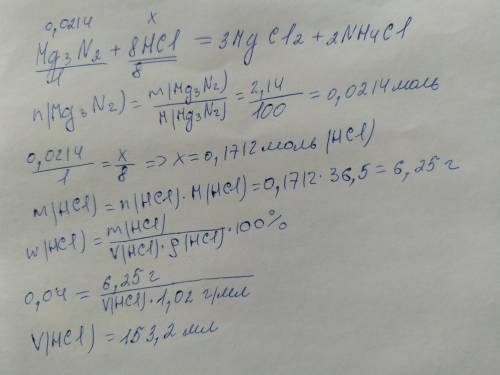 0,0214 x
Mg3N2 + 8HCl = 3MgCl2 + 2NH4Cl
1 8
n(Mg3N2) = m(Mg3N2)/M(Mg3N2) = 2,14/100 = 0,0214 моль
0,0214/1 = x/8 => x = 0,1712 моль (HCl)
m(HCl) = n(HCl) · M(HCl) = 0,1712 · 36,5 = 6,25 г
w(HCl) = m(HCl)/V(HCl) · ρ(HCl) · 100%
0,04 = 6,25 г/V(HCl) · 1,02 г/мл
V(HCl) = 153,2 мл